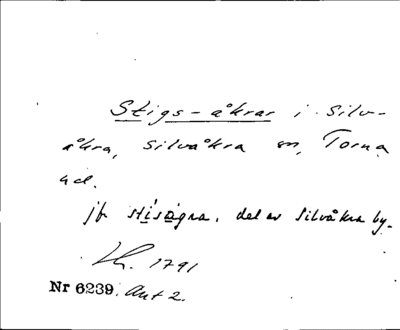 Stigs-åkrar i Silv-
åkra, Silvåkra sn, Torna
hd.
jfr stísǫgna, del av Silvåkra by.
Lh. 1791
Nr 6239. Ant 2.